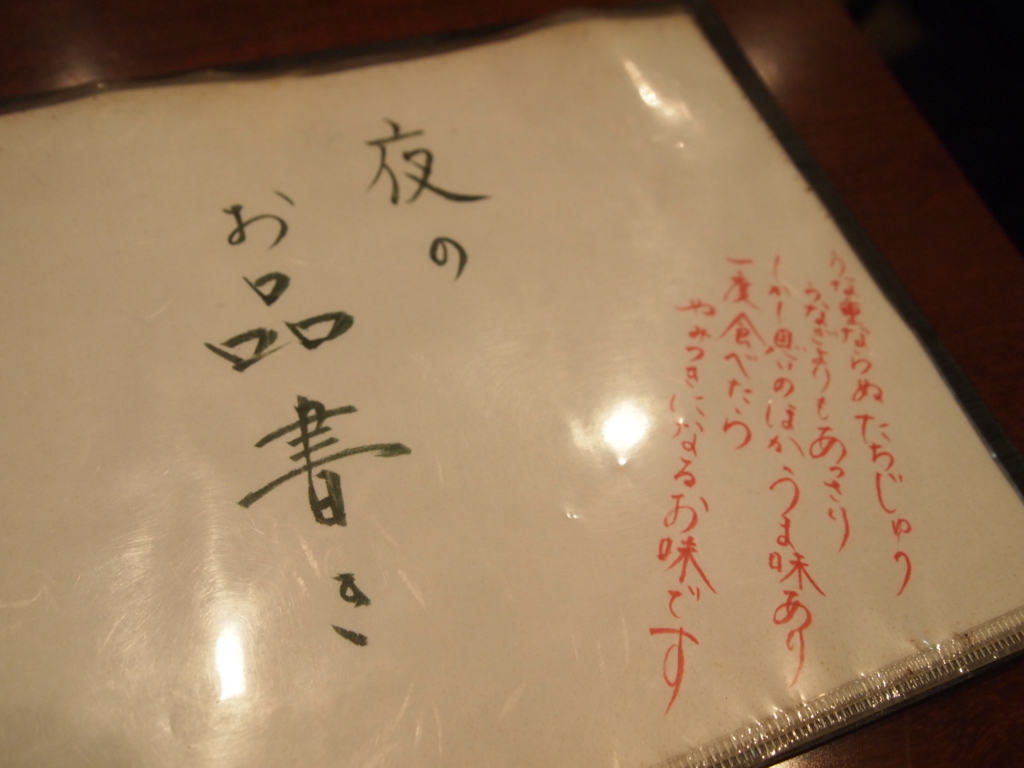 うな重ならぬたちじゅう
うなぎよりもあっさり
しかし思いのほかうま味あり
一度食べたら
やみつきになるお味です
夜の
お品書き